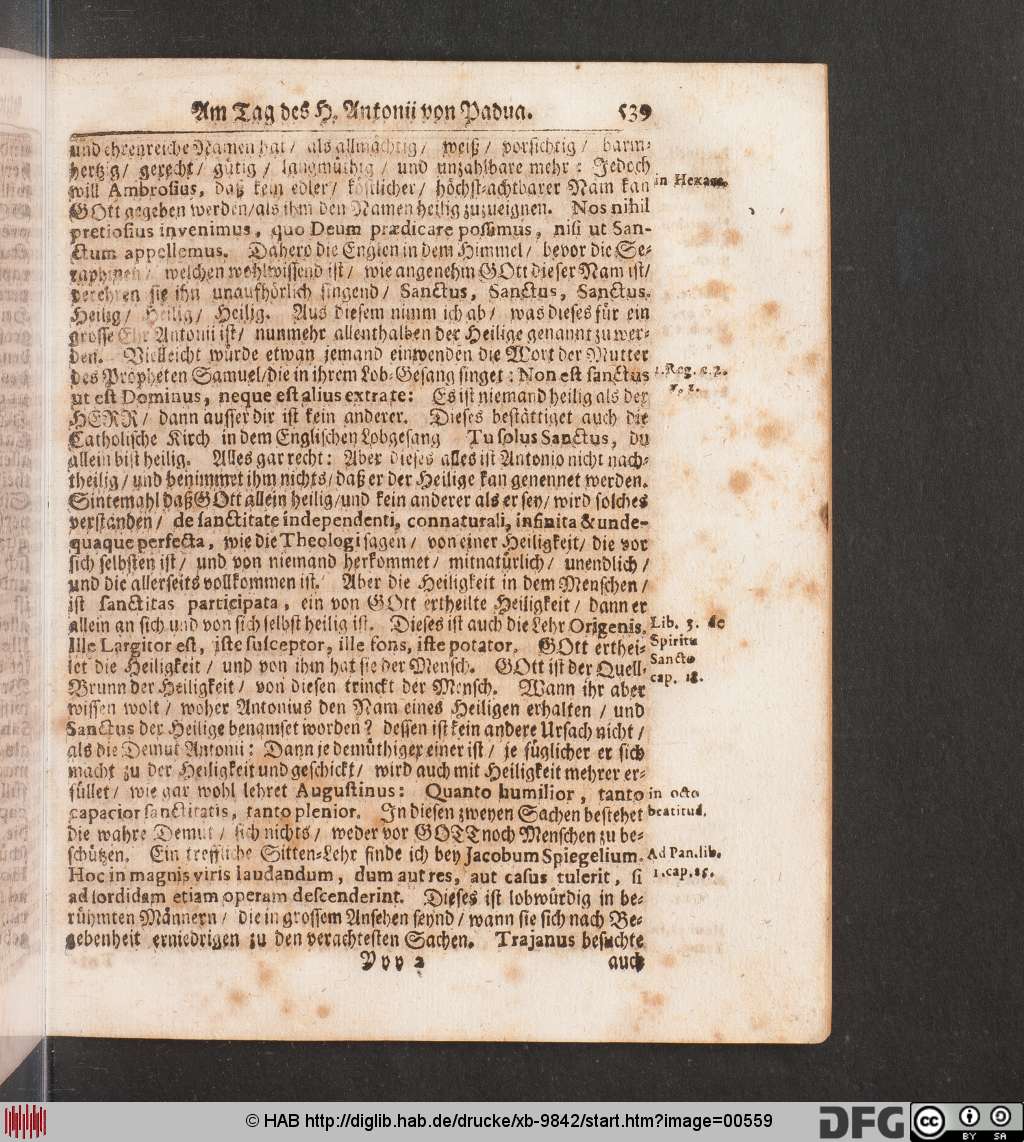 Am Tag des H. Antonii von Padua. 539
und ehrenreiche Namen hat / als allmächtig / weiß / vorsichtig / barm-
hertzig / gerecht / gütig / langmüthig / und unzahlbare mehr: Jedoch
will Ambrosius, daß kein edler / köstlicher / höchst-achtbarer Nam kan
GOtt gegeben werden / als ihm den Namen heilig zuzueignen. Nos nihil
in Hexam.
pretiosius invenimus, quo Deum prædicare possimus, nisi ut San-
ctum appellemus. Dahero die Englen in dem Himmel / bevor die Se-
raphinen / welchen wohlwissend ist / wie angenehm GOtt dieser Nam ist /
verehren sie ihn unaufhörlich singend / Sanctus, Sanctus, Sanctus.
Heilig / Heilig / Heilig. Aus diesem nimm ich ab / was dieses für ein
grosse Ehr Antonii ist / nunmehr allenthalben der Heilige genannt zu wer-
den. Vielleicht würde etwan jemand einwenden die Wort der Mutter
des Propheten Samuel / die in ihrem Lob-Gesang singet: Non est sanctus
1. Reg. c. 2.
v. 2.
ut est Dominus, neque est alius extra te: Es ist niemand heilig als der
HERR / dann ausser dir ist kein anderer. Dieses bestättiget auch die
Catholische Kirch in dem Englischen Lobgesang Tu solus Sanctus, du
allein bist heilig. Alles gar recht: Aber dieses alles ist Antonio nicht nach-
theilig / und benimmet ihm nichts / daß er der Heilige kan genennet werden.
Sintemahl daß GOtt allein heilig / und kein anderer als er sey / wird solches
verstanden / de sanctitate independenti, connaturali, infinita & unde-
quaque perfecta, wie die Theologi sagen / von einer Heiligkeit / die vor
sich selbsten ist / und von niemand herkommet / mitnatürlich / unendlich /
und die allerseits vollkommen ist. Aber die Heiligkeit in dem Menschen /
ist sanctitas participata, ein von GOtt ertheilte Heiligkeit / dann er
allein an sich und von sich selbst heilig ist. Dieses ist auch die Lehr Origenis.
Lib. 3. de
Spiritu
Sancto
cap. 18.
Ille Largitor est, iste susceptor, ille fons, iste potator. GOtt erthei-
let die Heiligkeit / und von ihm hat sie der Mensch. GOtt ist der Quell-
Brunn der Heiligkeit / von diesen trinckt der Mensch. Wann ihr aber
wissen wolt / woher Antonius den Nam eines Heiligen erhalten / und
Sanctus der Heilige benamset worden? dessen ist kein andere Ursach nicht /
als die Demut Antonii: Dann je demüthiger einer ist / je füglicher er sich
macht zu der Heiligkeit und geschickt / wird auch mit Heiligkeit mehrer er-
füllet / wie gar wohl lehret Augustinus: Quanto humilior, tanto
in octo
beatitud.
capacior sanctitatis, tanto plenior. In diesen zweyen Sachen bestehet
die wahre Demut / sich nichts / weder vor GOTT noch Menschen zu be-
schützen. Ein treffliche Sitten-Lehr finde ich bey Jacobum Spiegelium.
Ad Pan. lib.
1. cap. 15.
Hoc in magnis viris laudandum, dum aut res, aut casus tulerit, si
ad sordidam etiam operam descenderint. Dieses ist lobwürdig in be-
rühmten Männern / die in grossem Ansehen seynd / wann sie sich nach Be-
gebenheit erniedrigen zu den verachtesten Sachen. Trajanus besuchte
Yyy 2 auch
© HAB http://diglib.hab.de/drucke/xb-9842/start.htm?image=00559
DFG
cc
BY SA